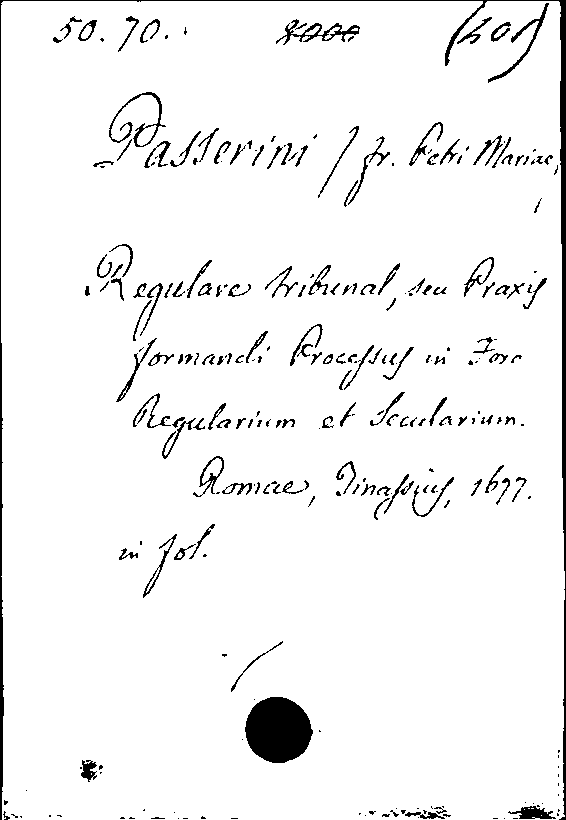 50.70. 8000 (201)
Passerini / fr. Petri Mariae,
Regulare tribunal, seu Praxis
formandi Processus in Foro
Regularium et Secularium.
Romae, Tinassius, 1677.
in fol.